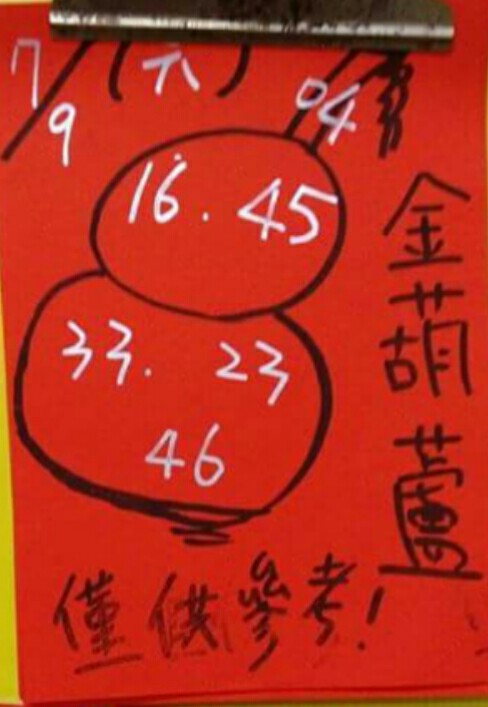 7/9 (六)
04
16. 45
33. 23
46
金葫蘆
僅供參考!